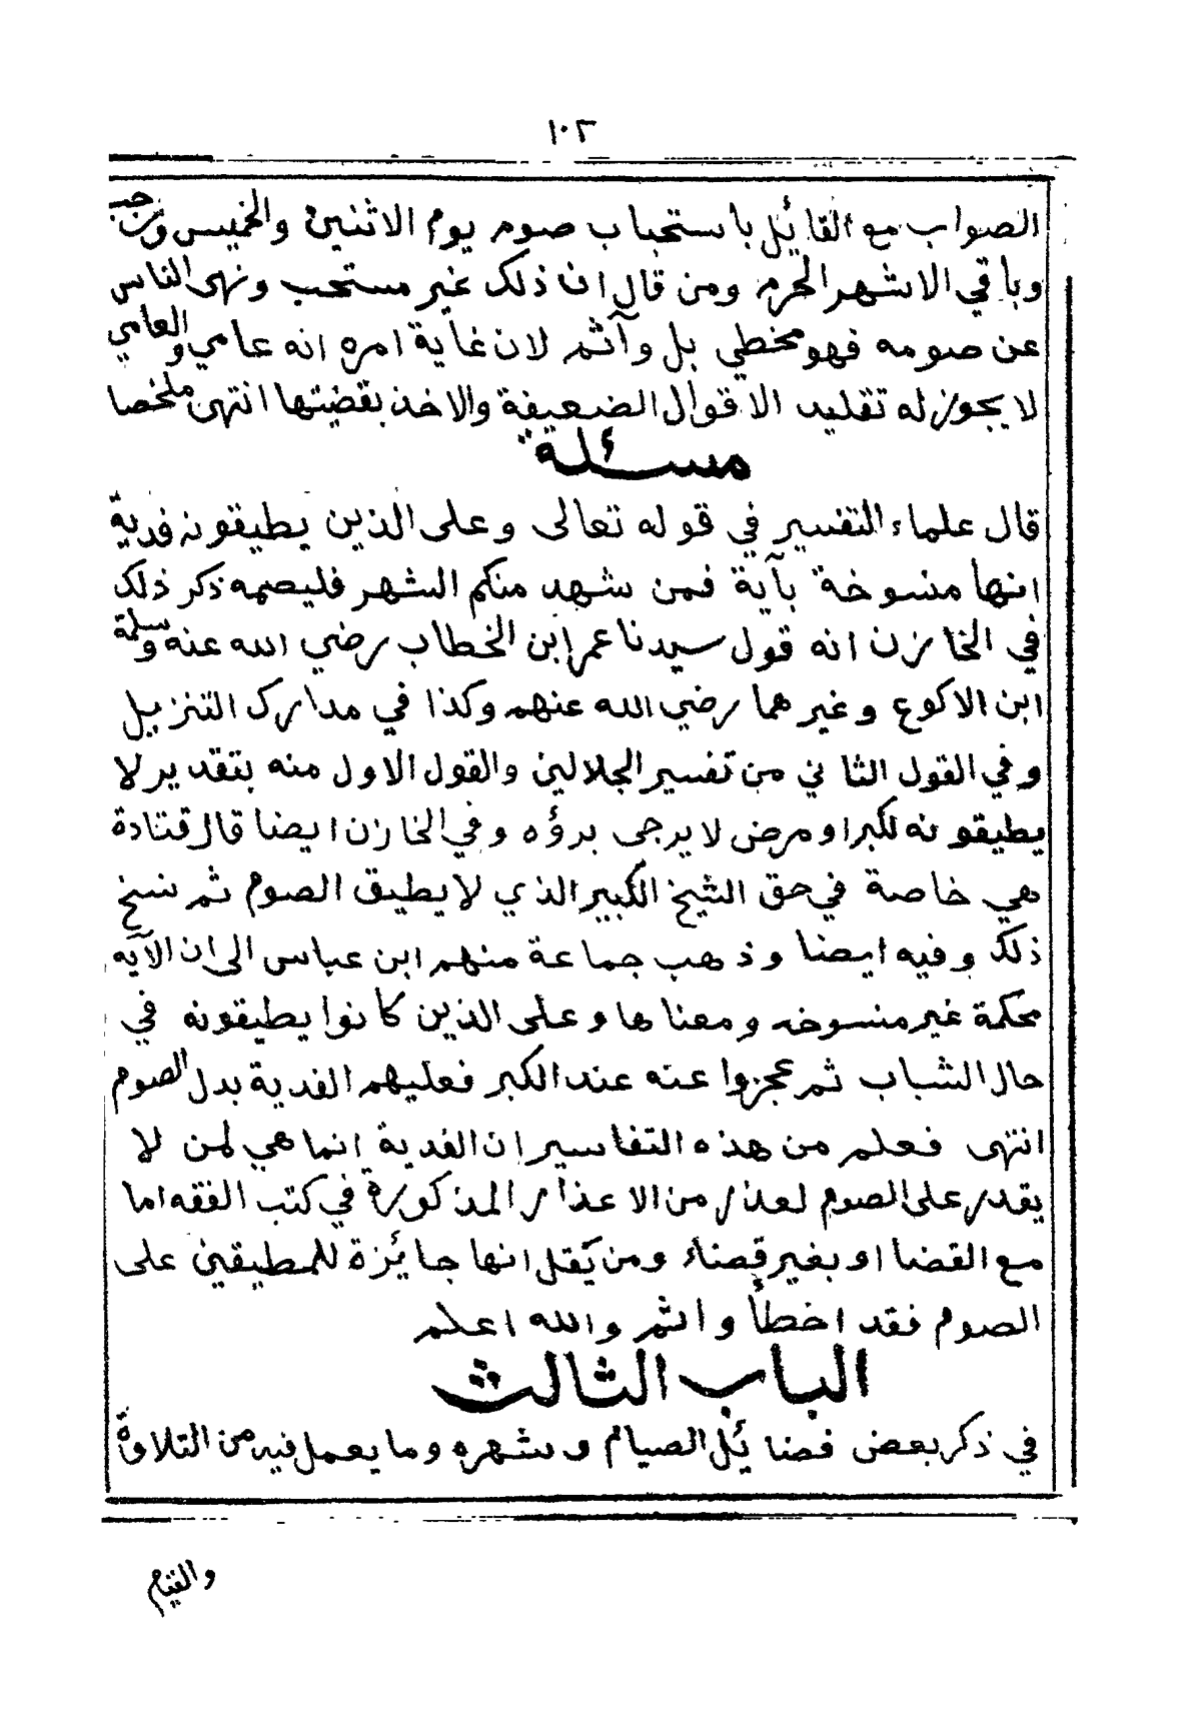 ١٠٢
الصواب مع القائل باستحباب صوم يوم الاثنين والخميس ورجب
وباقي الاشهر الحرم ومن قال ان ذلك غير مستحب ونهى الناس
عن صومه فهو مخطي بل وآثم لان غاية امره انه عامي والعامي
لا يجوز له تقليد الاقوال الضعيفة والاخذ بقضيتها انتهى ملخصا
مسئلة
قال علماء التفسير في قوله تعالى وعلى الذين يطيقونه فدية
انها منسوخة بآية فمن شهد منكم الشهر فليصمه ذكر ذلك
في الخازن انه قول سيدنا عمر ابن الخطاب رضي الله عنه وسلمة
ابن الاكوع وغيرهما رضي الله عنهم وكذا في مدارك التنزيل
وفي القول الثاني من تفسير الجلالين والقول الاول منه بتقدير لا
يطيقونه لكبر او مرض لا يرجى برؤه وفي الخازن ايضا قال قتادة
هي خاصة في حق الشيخ الكبير الذي لا يطيق الصوم ثم نسخ
ذلك وفيه ايضا وذهب جماعة منهم ابن عباس الى ان الآيه
محكمة غير منسوخه ومعناها وعلى الذين كانوا يطيقونه في
حال الشباب ثم عجزوا عنه عند الكبر فعليهم الفدية بدل الصوم
انتهى فعلم من هذه التفاسير ان الفدية انما هي لمن لا
يقدر على الصوم لعذر من الاعذار المذكورة في كتب الفقه اما
مع القضا او بغير قضاء ومن يقل انها جائزة للمطيقين على
الصوم فقد اخطأ واثم والله اعلم
الباب الثالث
في ذكر بعض فضائل الصيام وشهره وما يعمل فيه من التلاوة
والقيام